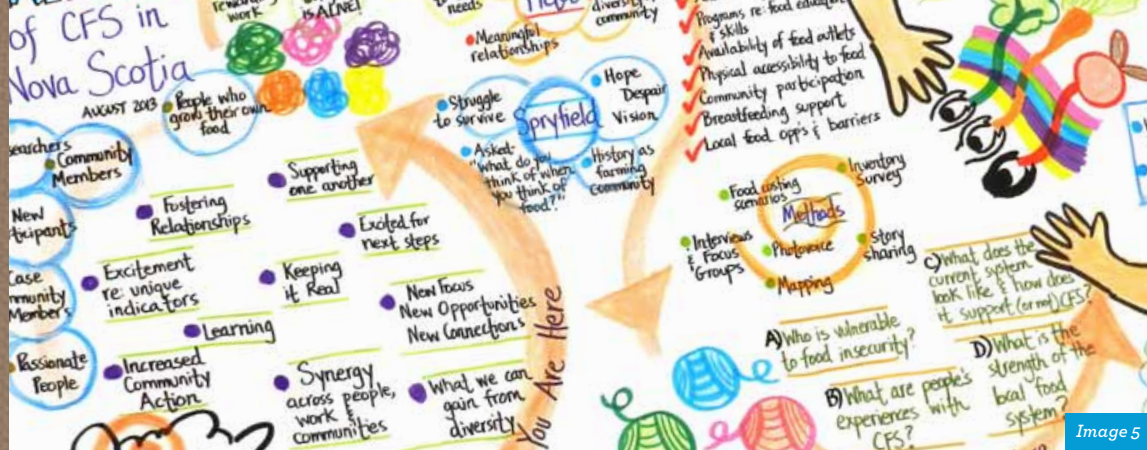 of CFS in
Nova Scotia
AUGUST 2013
work
is ALIVE!
needs
Meaningful
relationships
diversity
community
People who
grow their own
food
Community
Members
New
Passionate
People
Fostering
Relationships
Excitement
re: unique
indicators
Learning
Increased
Community
Action
Supporting
one another
Excited for
next steps
Keeping
it Real
New Focus
New Opportunities
New Connections
Synergy
across people,
work &
communities
What we can
gain from
diversity
You Are Here
Struggle
to survive
Spryfield
Hope
Despair
Vision
Asked:
"what do you
think of when
you think of
food?"
History as
farming
community
Programs re: food education
& skills
Availability of food outlets
Physical accessibility to food
Community participation
Breastfeeding support
Local food opp's & barriers
Methods
Food costing
scenarios
Inventory
Survey
Interviews
& Focus
Groups
Photovoice
Story
sharing
Mapping
A) Who is vulnerable
to food insecurity?
B) What are people's
experiences with
CFS?
C) What does the
current system
look like & how does
it support (or not) CFS?
D) What is the
strength of the
local food
system?
Image 5